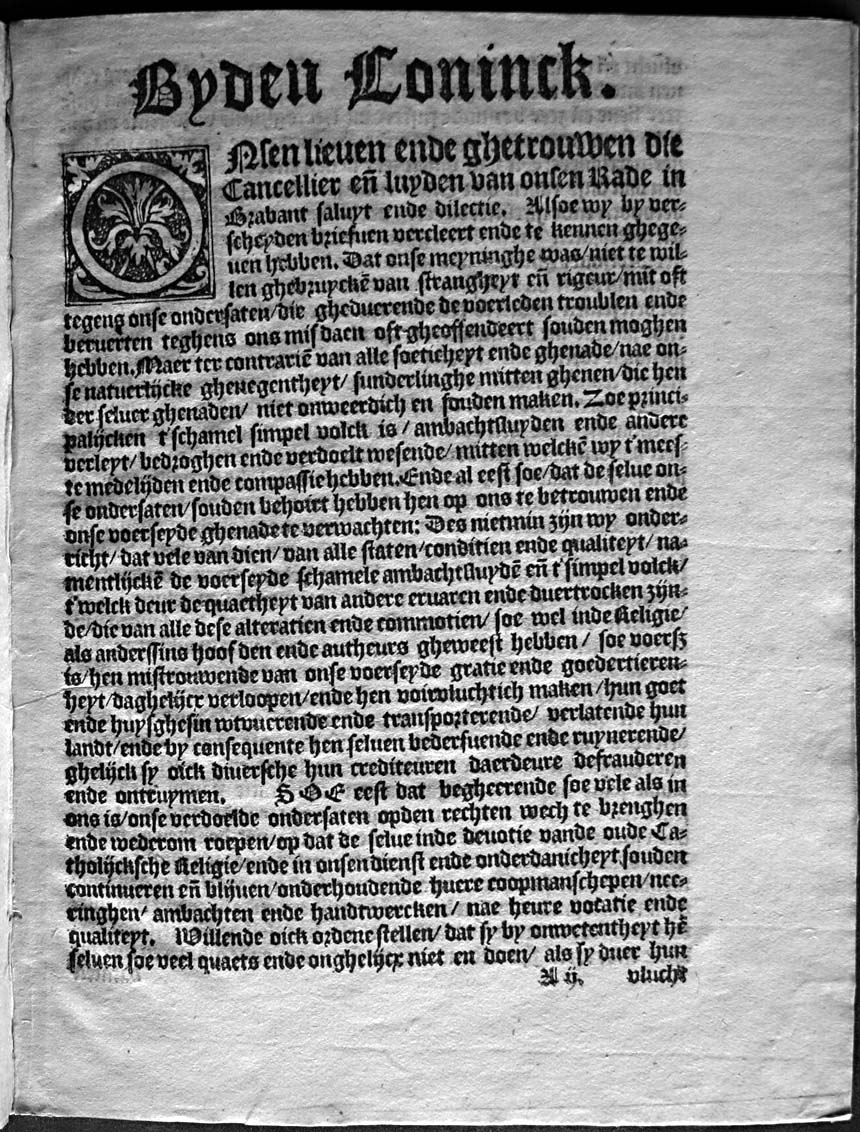 Byden Coninck.
ONsen lieuen ende ghetrouwen die
Cancellier eñ luyden van onsen Rade in
Brabant saluyt ende dilectie. Alsoe wy by ver-
scheyden briefuen vercleert ende te kennen ghege-
uen hebben. Dat onse meyninghe was/niet te wil-
len ghebruyckē van strangheyt eñ rigeur/mit oft
tegens onse ondersaten/die gheduerende de voerleden troublen ende
beruerten teghens ons misdaen oft gheoffendeert souden moghen
hebben. Maer ter contrariē van alle soeticheyt ende ghenade/nae on-
se natuerlijcke gheneghentheyt/ sunderlinghe mitten ghenen/die hen
der seluer ghenaden/ niet onweerdich en souden maken. Zoe princi-
palijcken t'schamel simpel volck is/ ambachtsluyden ende andere
verleyt/bedroghen ende verdoelt wesende/mitten welckē wy t'mees-
te medelijden ende compassie hebben. Ende al eest soe/dat de selue on-
se ondersaten/souden behoirt hebben hen op ons te betrouwen ende
onse voerseyde ghenade te verwachten: Des nietmin zijn wy onder-
richt/dat vele van dien/van alle staten/conditien ende qualiteyt/na-
mentlijckē de voerseyde schamele ambachtsluydē eñ t'simpel volck/
t'welck deur de quaetheyt van andere eruaren ende duertrocken zijn-
de/die van alle dese alteratien ende commotien/ soe wel inde Religie/
als anderssins hoofden ende autheurs gheweest hebben/ soe voersz
is/hen mistrouwende van onse voerseyde gratie ende goedertieren-
heyt/daghelijcx verloopen/ende hen voirvluchtich maken/hun goet
ende huysghesin wtvuerende ende transporterende/ verlatende hun
landt/ende by consequente hen seluen bederfuende ende ruynerende/
ghelijck sy oick diuersche hun crediteuren daerdeure defrauderen
ende ontruymen. SOE eest dat begheerende soe vele als in
ons is/onse verdoelde ondersaten opden rechten wech te brenghen
ende wederom roepen/op dat de selue inde deuotie vande oude Ca-
tholijcksche Religie/ende in onsen dienst ende onderdanicheyt souden
continueren eñ blijuen/onderhoudende huere coopmanschepen/nee-
ringhen/ ambachten ende handtwercken/ nae heure votatie ende
qualiteyt. Willende oick ordene stellen/dat sy by onwetentheyt hē
seluen soe veel quaets ende onghelijcx niet en doen/ als sy duer hun
A ij. vlucht